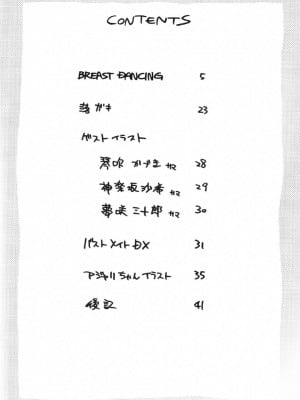 CONTENTS
BREAST DANCING 5
当ガキ 23
ゲストイラスト
琴吹かづき サマ 28
神楽坂沙希 サマ 29
夢咲三十郎 サマ 30
バストメイトDX 31
アジャリちゃんイラスト 35
後記 41